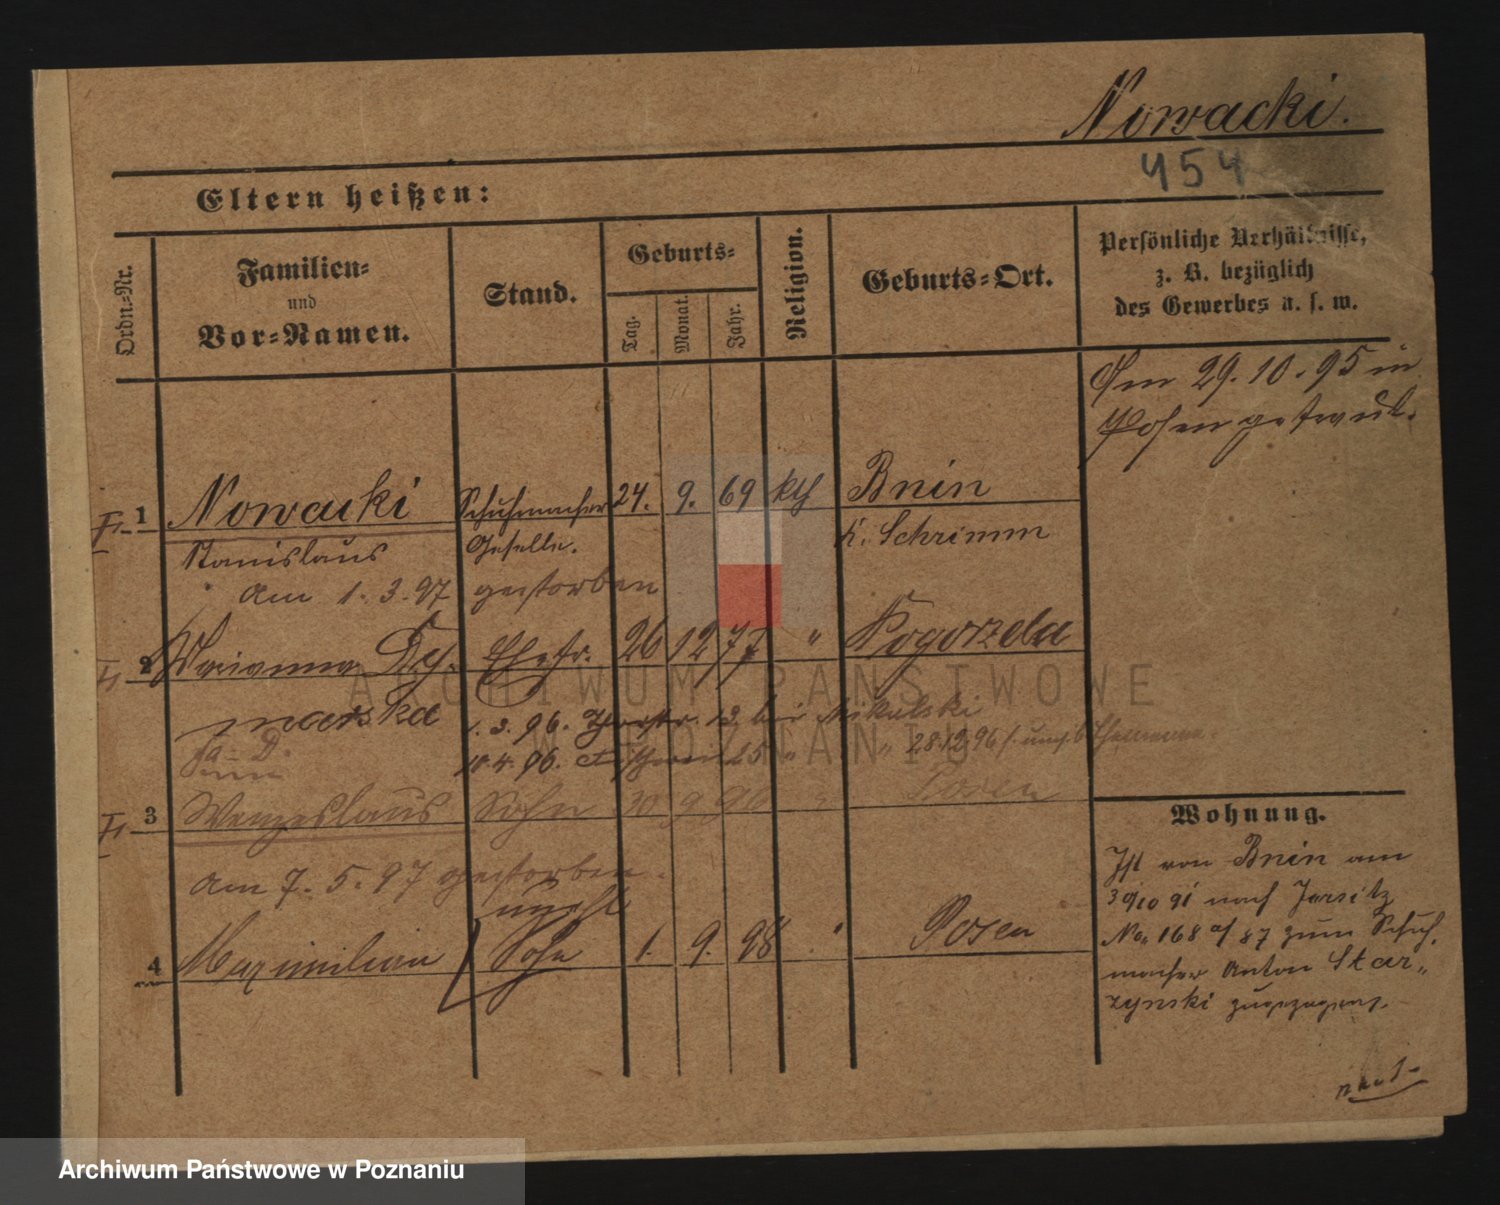 Nowacki.
454
Eltern heißen:
Ordn.-Nr.
Familien-
und
Vor-Namen.
Stand.
Geburts-
Tag.
Monat.
Jahr.
Religion.
Geburts-Ort.
Persönliche Verhältnisse,
z. B. bezüglich
des Gewerbes u. s. w.
Am 29. 10. 95 in
Posen getraut.
1 Nowacki Schuhmacher 24. 9. 69 kth Bnin
Stanislaus Geselle. K. Schrimm
Am 1. 3. 97 gestorben
2 Marianna Ehefr. 26 12 77 " Pogorzela
marska
1. 3. 96. 13 bei Mikulski
10. 4. 96. 15 " " 28.12.96
3 Wenzeslaus Sohn 30 9 96 " Posen
am 7. 5. 97 gestorben.
unehl
4 Maximilian Sohn 1. 9. 98 " Posen
Wohnung.
Ist von Bnin am
30/10 91 nach Jersitz
No. 168 a/87 zum Schuh,
macher Anton Star„
zynski zugezogen.
ARCHIWUM PAŃSTWOWE
W POZNANIU
Archiwum Państwowe w Poznaniu